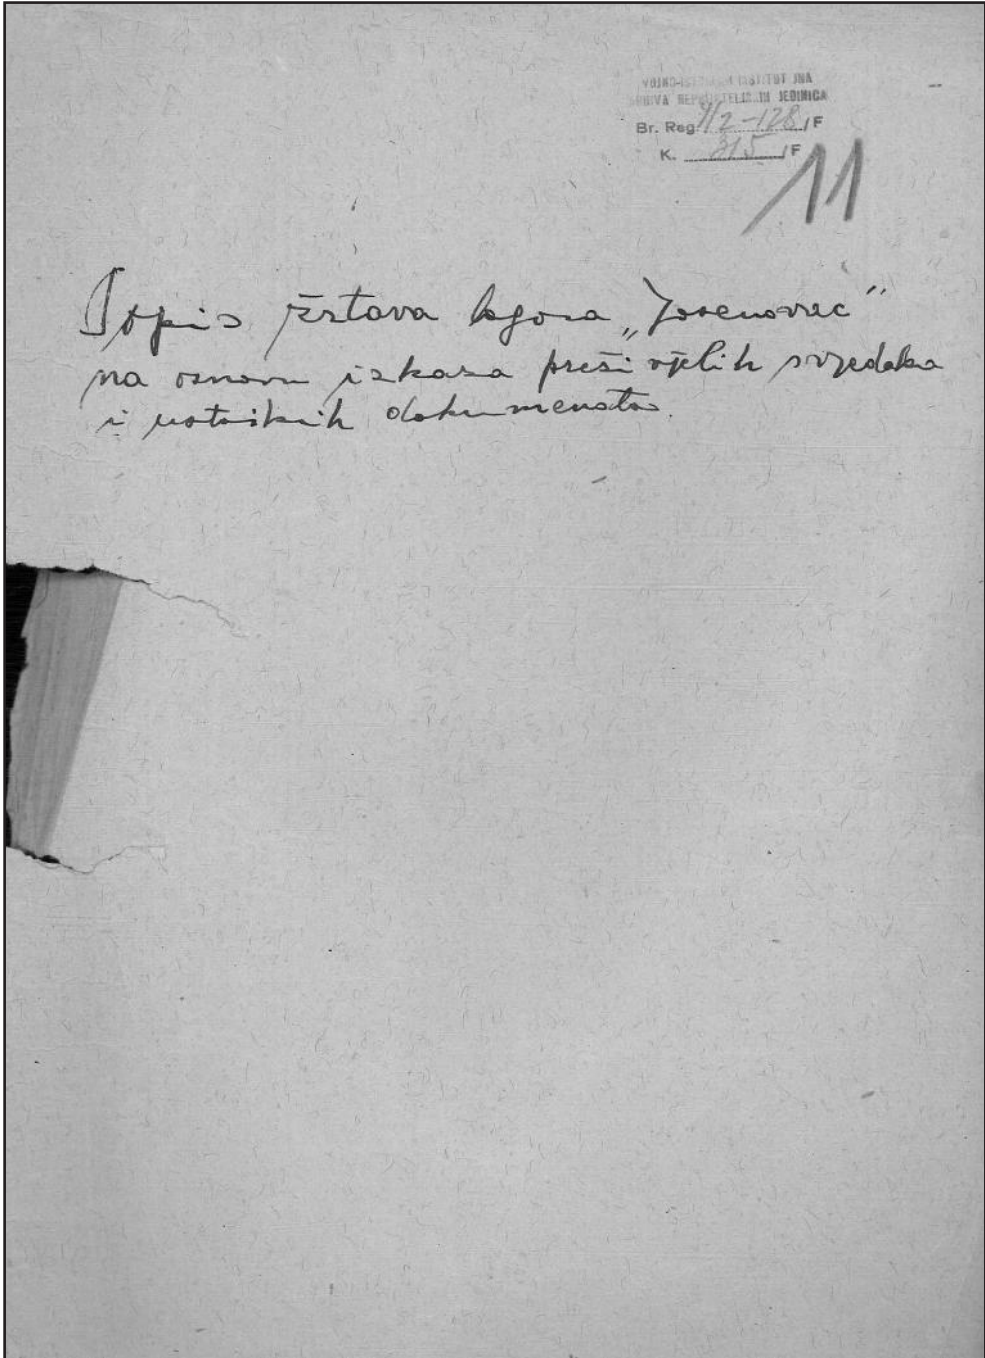 VOJNO-ISTORISKI INSTITUT JNA
ARHIVA NEPRIJATELJSKIH JEDINICA
Br. Reg. 9/2-128/F
K. 315/F
11
Popis žrtava logora „Jasenovac“
na osnovu izkaza preživjelih svjedoka
i ustaških dokumenata.